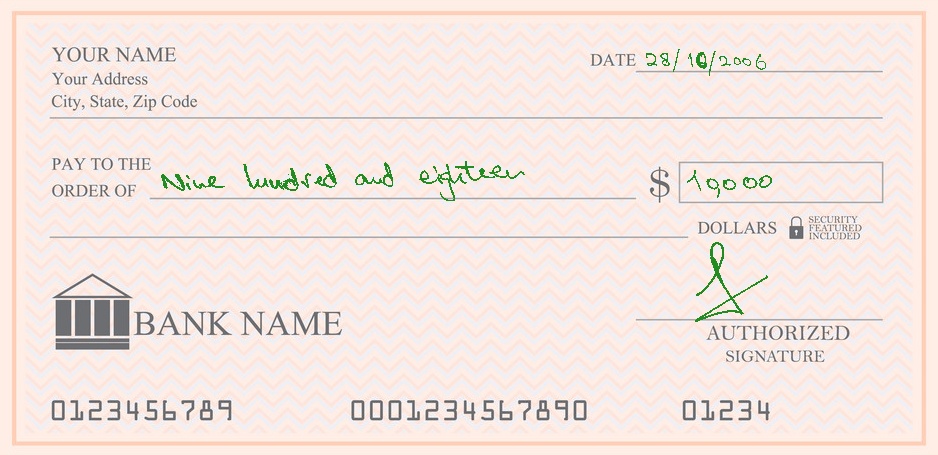 YOUR NAME
Your Address
City, State, Zip Code
DATE 28/10/2006
PAY TO THE
ORDER OF Nine hundred and eighteen
$ 10,000
DOLLARS SECURITY
FEATURED
INCLUDED
BANK NAME
AUTHORIZED
SIGNATURE
0123456789 0001234567890 01234